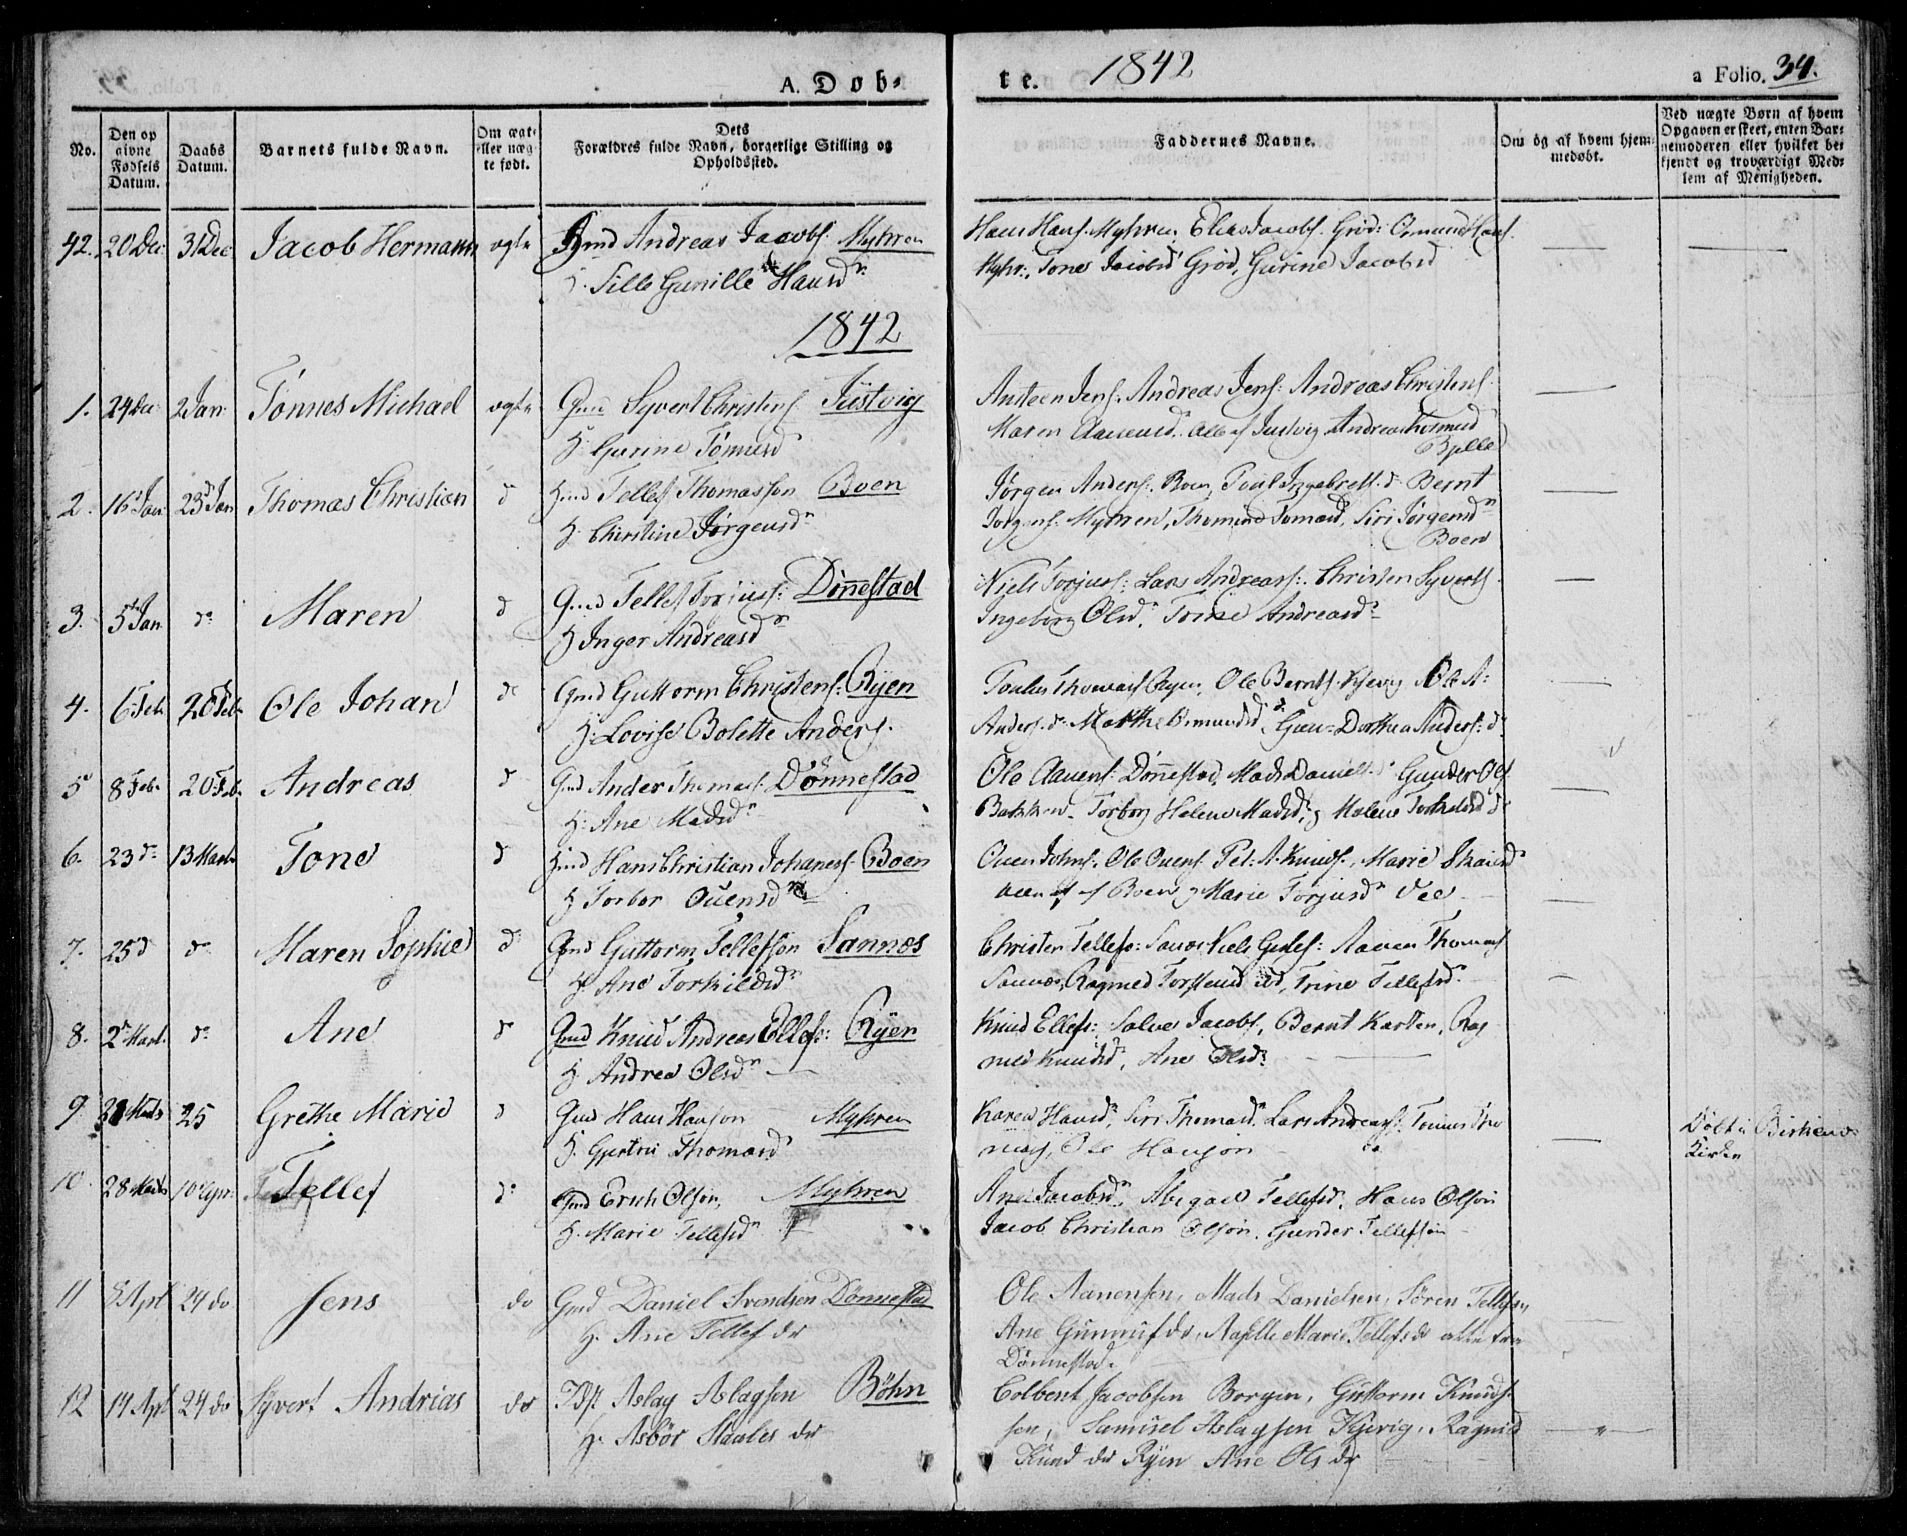 A. Døb-
te. 1842 a Folio. 34.
No.
Den op
givne
Fødsels
Datum.
Daabs
Datum.
Barnets fulde Navn.
Om ægt-
eller næg-
te født.
Dets
Forældres fulde Navn, borgerlige Stilling og
Opholdssted.
Faddernes Navne.
Om og af hvem hjem-
medøbt.
Ved nægte Børn af hvem
Opgaven er skeet, enten Bar-
nemoderen eller hvilket be-
kjendt og troværdigt Med-
lem af Menigheden.
42. 20 Dec 31 Dec Jacob Hermann ægte Andreas Jacobs. Myhren
H. Sille Gunille Hansdr
Hans Hans. Myhren Elias Jacobs. Grød: Osmund Hans.
Myhr:, Tone Jacobsd Grød, Gurine Jacobsd
1842
1. 24 Dec 2 Jan Tønnes Michael ægte Gmd Syvert Christens. Justvig
H. Gurine Tønnesd
Anteen Jens. Andreas Jens: Andreas Christens.
Maren Aanensd. alle af Justvig
2. 16 Jan 23 Jan Thomas Christian d Hmd Tellef Thomasson Boen
H. Christine Jørgensdr
Jørgen Anders. Boen, Poul Ingebrets. d Bernt
Jørgens. Myhren, Siri Jørgensdr
Boen
3. 5 Jan do Maren d Gmd Tellef Torjuss: Dønnestad
H Inger Andreasdr
Niels Torjuss: Lars Andreass: Christen Syverts.
Ingeborg Olsd, Torine Andreasdr
4. 6 Feb 20 Feb Ole Johan do Gmd Guttorm Christens: Ryen
H. Lovise Bolette Anders.
Thomas Ryen, Ole Bernts. Kjevig Ole A:
Anders. do Marthe Osmundsd, Gun= Dorthea Anders: d
5 8 Feb 20 Feb Andreas d Gmd Ander Thomas. Dønnestad
H. Ane Madsdr
Ole Aanens. Dønnestad, Mads Daniels. Gunder Ols
Bakken. Torborg Helene Madsd, Malene
6. 23 do 13 Marts Tone d Hmd Hans Christian Johaness. Boen
H Torbor Ouensdr
Ouen Johns. Ole Ouens. Pet. A. Knuds., Marie
af Boen, Marie Torjusdr Vee
7. 25 d do Maren Sophie d Gmd Guttorm Tellefsson Sannes
H. Ane Torkildsdr
Christen Tellefs: Sannes Niels Aanen Thomas
Sannes, Ragnild Torstensd ibd, Trine Tellefsd.
8. 2 Mart. do Ane d Gmd Knud Andreas Ellefs: Ryen
H. Andrea Olsdr
Knud Ellefs: Salve Jacobs, Bernt Karsten, Rag
nild Knudsd, Ane Olsd
9. 21 Marts 25 Grethe Marie d Gmd Hans Hanson Myhren
H. Gjertru Thomasd
Karen Hansd, Siri Thomasd. Lars Andreas, Tønnes Tho
mas, Ole Hanson
Døbt i Birkenes
Kirke
10. 28 Marts 10 Apr: Tellef do Gmd Erich Olson, Myhren
H. Marie Tellefsd
Ane Jacobsd. Abigael Tellefsd. Hans Olson
Jacob Christian Olson. Gunder Tellefson
11 8 Apl 24 do Jens do Gmd Daniel Svendsen Dønnestad
H. Ane Tellef dr
Ole Aanensen, Mads Danielsen, Sören Tellefsen,
Ane Gunnufdr, Marie Tellefsdr alle fra
Dønnestad.
12 14 Apl 24 do Syvert Andrias do Aslag Aslagsen Bøhn
H. Asbör Staales dr
Colbent Jacobsen Borgen, Guttorm Knud
sen, Samuel Aslagsen Kjevig, Ragnild
Knud dr Ryen Ane Ols dr